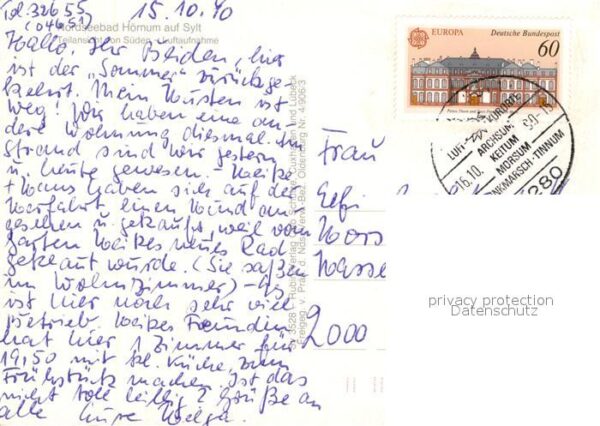 Tel. 32655
(04651)
15.10.90
Nordseebad Hörnum auf Sylt
Teilansicht von Süden - Luftaufnahme
Hallo, Ihr Beiden, hier
ist der "Sommer" zurückge
kehrt. Mein Husten ist
weg! Wir haben eine an
dere Wohnung diesmal. Am
Strand sind wir gestern
u. heute gewesen - Heike
+ Hans haben sich auf der
Herfahrt einen Hund an
gesehen u. gekauft, weil vom
Garten Heikes neues Rad
geklaut wurde. (Sie saßen
im Wohnzimmer) -
ist hier noch sehr viel
Betrieb. Heikes Freundin
hat hier 1 Zimmer für
19,50 mit kl. Küche, zum
Frühstück machen. Ist das
nicht toll billig? Grüße an
alle Eure Helga
Frau
Elfi
2000
EUROPA
Deutsche Bundespost
60
ARCHSUM
KEITUM
MORSUM
TINNUM
16.10.
2280
privacy protection
Datenschutz